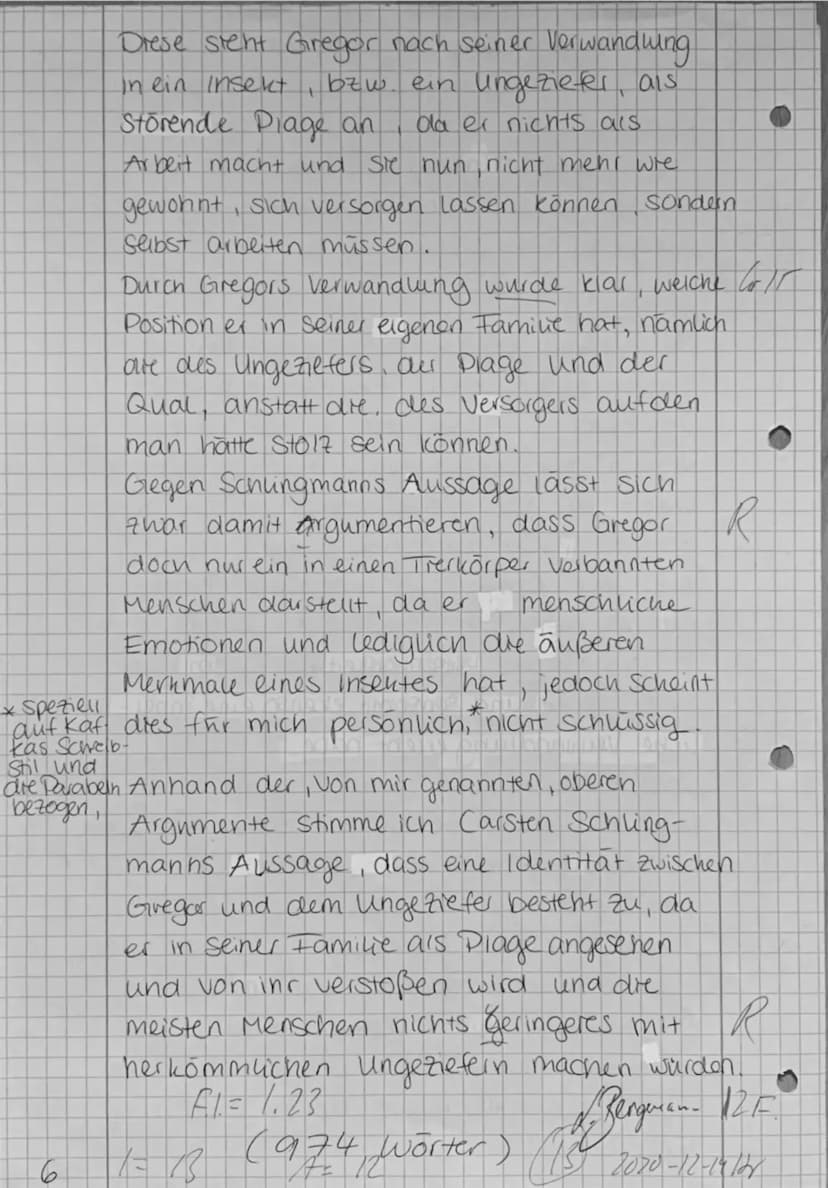 Diese sieht Gregor nach seiner Verwandlung
in ein Insekt, bzw. ein Ungeziefer, als
störende Plage an, da er nichts als
Arbeit macht und sie nun, nicht mehr wie
gewohnt, sich versorgen lassen können, sondern
selbst arbeiten müssen.
Durch Gregors Verwandlung wurde klar, welche
Position er in seiner eigenen Familie hat, nämlich
die des Ungeziefers, der Plage und der
Qual, anstatt die, des Versorgers auf den
man hätte stolz sein können.
Gegen Schlingmanns Aussage lässt sich
zwar damit argumentieren, dass Gregor R
doch nur ein in einen Tierkörper verbannten
Menschen darstellt, da er menschliche
Emotionen und lediglich die äußeren
Merkmale eines Insektes hat, jedoch scheint
dies für mich persönlich,* nicht schlüssig.
* speziell
auf Kaf-
kas Schreib-
stil und
die Parabeln
bezogen,
Anhand der, von mir genannten, oberen
Argumente stimme ich Carsten Schling-
manns Aussage, dass eine Identität zwischen
Gregor und dem Ungeziefer besteht zu, da
er in seiner Familie als Plage angesehen
und von ihr verstoßen wird und die
meisten Menschen nichts geringeres mit R
herkömmlichen Ungeziefern machen würden.
FI = 1.23
Bergman- 12 F
(974 Wörter)
6 I = 13 A = 12 (13) 2020-12-19